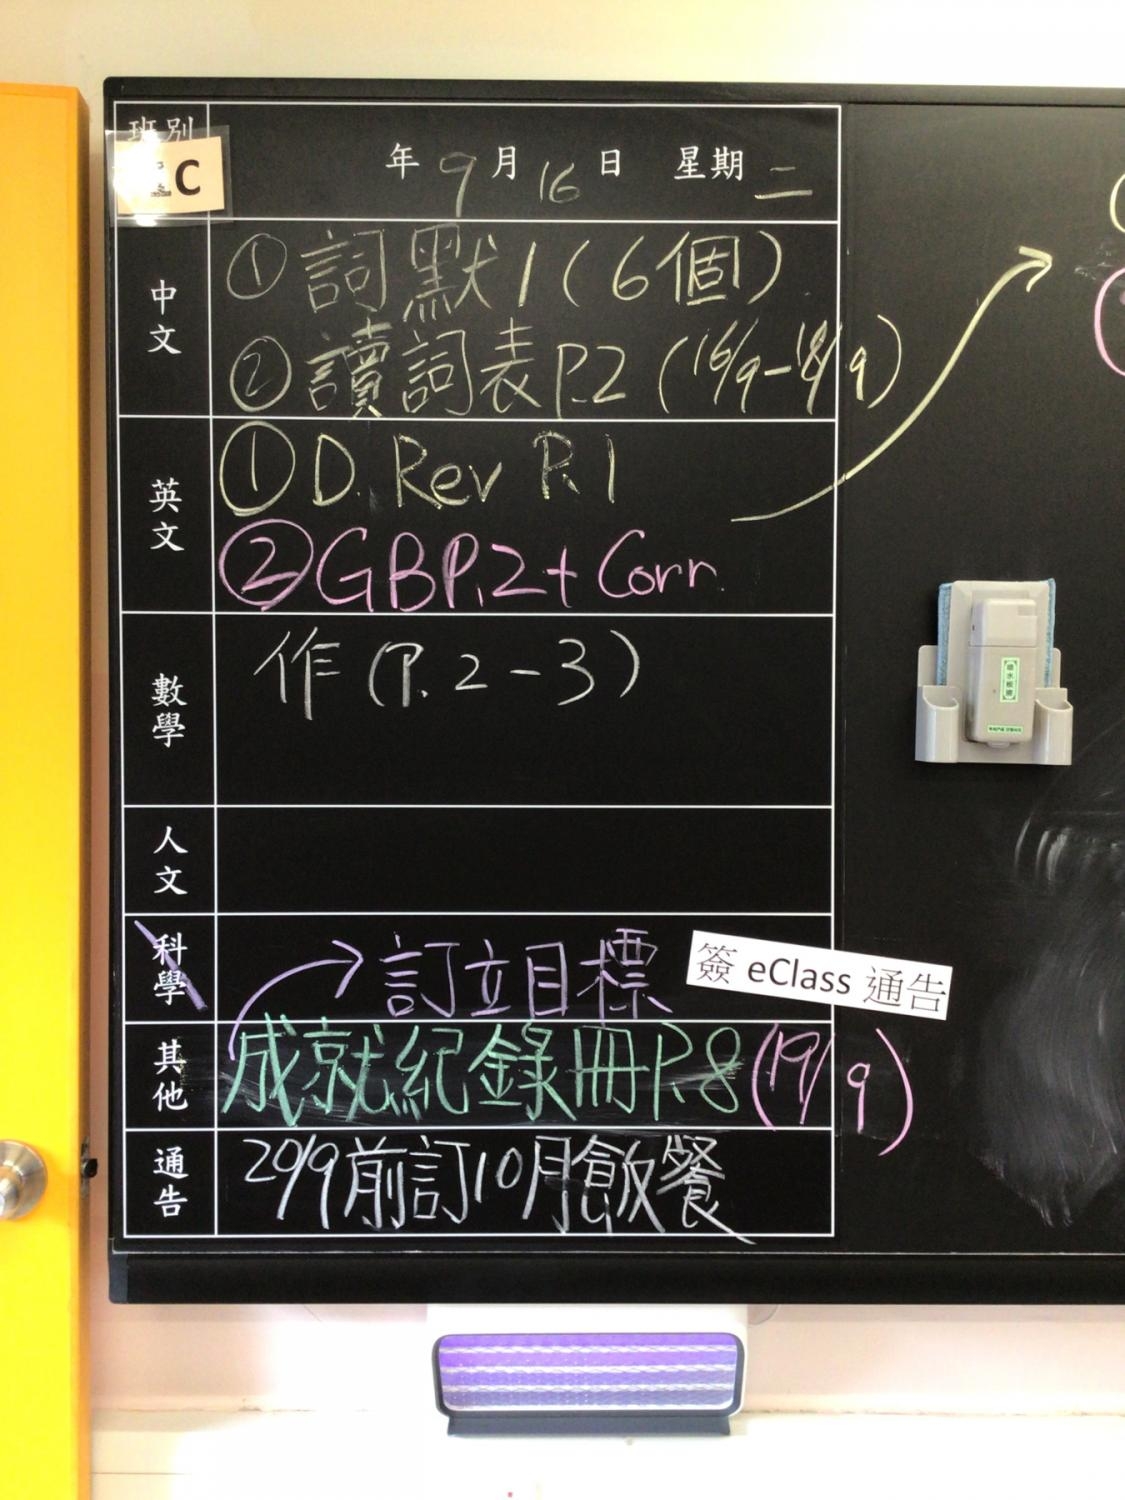 班別
C
年 9 月 16 日 星期 二
中文
① 詞默1(6個)
② 讀詞表P.2 (16/9-18/9)
英文
① D. Rev P.1
② GB P.2 + Corr.
數學
作 (P.2-3)
人文
科學
訂立目標
簽 eClass 通告
其他
成就紀錄冊P.8(19/9)
通告
20/9前訂10月飯餐